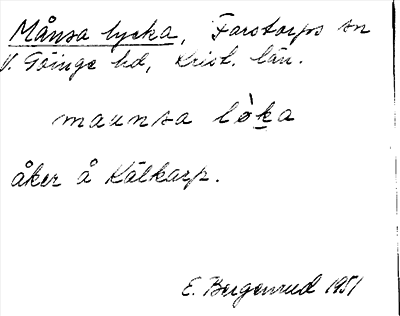 Månsa lycka, Farstorps sn
V. Göinge hd, Krist. län.
maunsa lòka
åker å Kälkarp.
E. Bergenrud 1951